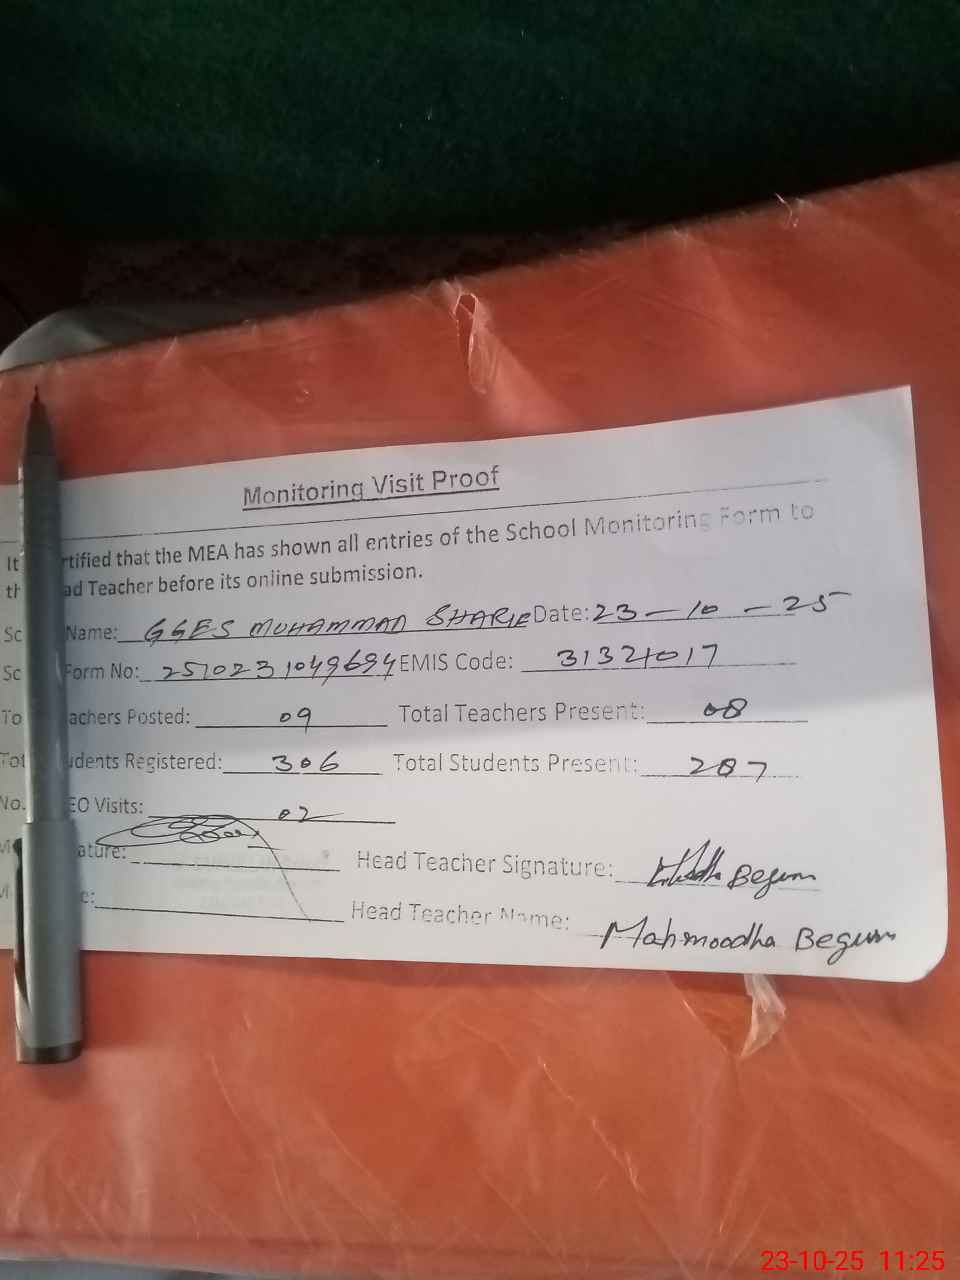 Monitoring Visit Proof
It rtified that the MEA has shown all entries of the School Monitoring Form to
th ad Teacher before its online submission.
Sc Name: GGES MUHAMMAD SHARIF Date: 23-10-25
Sc Form No: 2510231049694 EMIS Code: 31321017
To achers Posted: 09 Total Teachers Present: 08
Tot udents Registered: 306 Total Students Present: 287
No. EO Visits: 02
M ature: Head Teacher Signature: Begum
M e: Head Teacher Name: Mahmoodha Begum
23-10-25 11:25